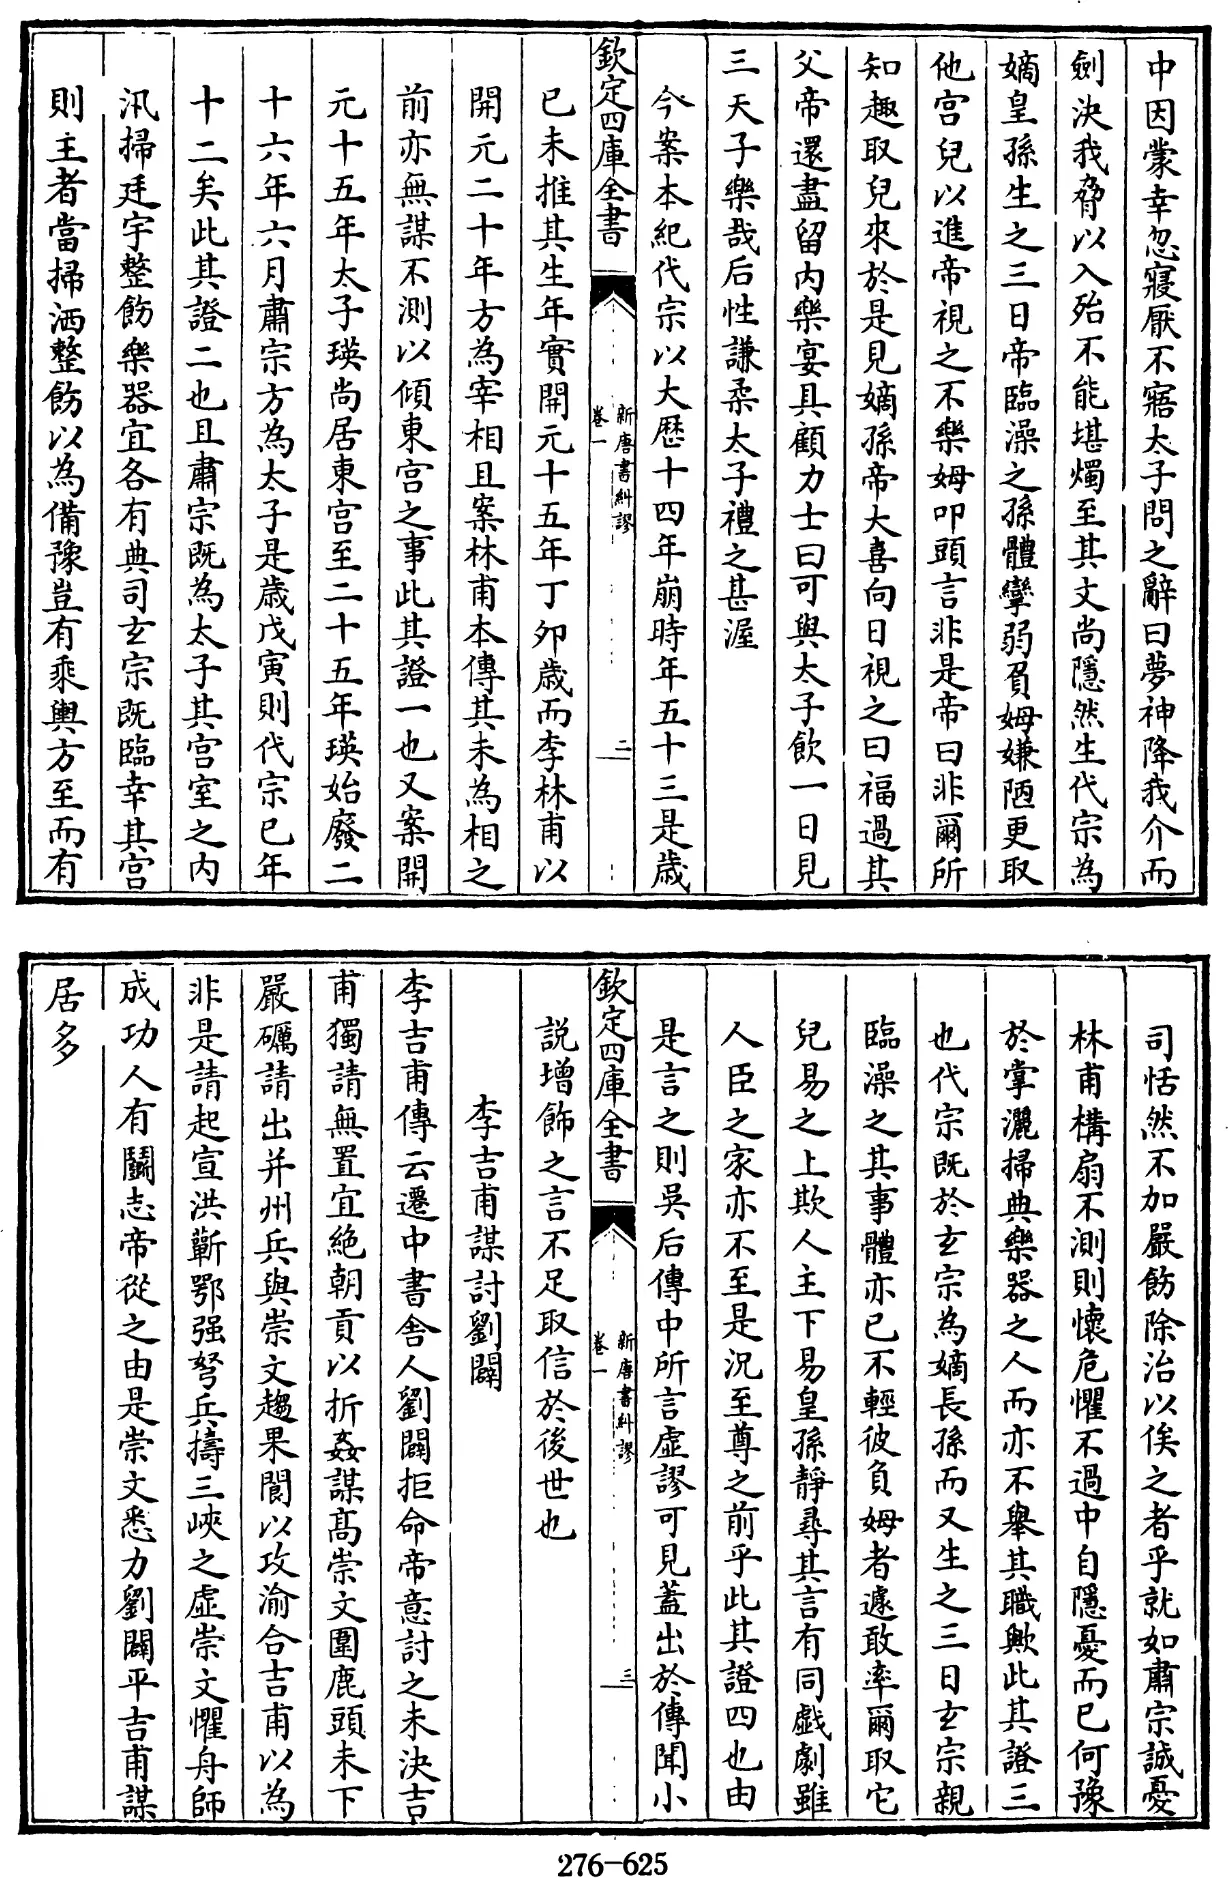 中因蒙幸忽寢厭不寤太子問之辭曰夢神降我介而
劍決我脅以入殆不能堪燭至其文尚隱然生代宗為
嫡皇孫生之三日帝臨澡之孫體孿弱負姆嫌陋更取
他宫兒以進帝視之不樂姆叩頭言非是帝曰非爾所
知趣取兒來於是見嫡孫帝大喜向日視之曰福過其
父帝還盡留内樂宴具顧力士曰可與太子飲一日見
三天子樂哉后性謙柔太子禮之甚渥
今案本紀代宗以大歴十四年崩時年五十三是歳
欽定四庫全書
新唐書糾謬
卷一
二
已未推其生年實開元十五年丁夘歳而李林甫以
開元二十年方為宰相且案林甫本傳其未為相之
前亦無謀不測以傾東宫之事此其證一也又案開
元十五年太子瑛尚居東宫至二十五年瑛始廢二
十六年六月肅宗方為太子是歳戊寅則代宗已年
十二矣此其證二也且肅宗既為太子其宫室之内
汛掃廷宇整飭樂器宜各有典司𤣥宗既臨幸其宫
則主者當掃洒整飭以為備豫豈有乘輿方至而有
司恬然不加嚴飭除治以俟之者乎就如肅宗誠憂
林甫構扇不測則懐危懼不過中自隱憂而已何豫
於掌灑掃典樂器之人而亦不舉其職歟此其證三
也代宗既於𤣥宗為嫡長孫而又生之三日𤣥宗親
臨澡之其事體亦已不輕彼負姆者遽敢率爾取它
兒易之上欺人主下易皇孫靜尋其言有同戲劇雖
人臣之家亦不至是況至尊之前乎此其證四也由
是言之則吳后傳中所言虛謬可見蓋出於傳聞小
欽定四庫全書
新唐書糾謬
卷一
三
説增飾之言不足取信於後世也
李吉甫謀討劉闢
李吉甫傳云遷中書舍人劉闢拒命帝意討之未決吉
甫獨請無置宜絶朝貢以折姦謀髙崇文圍鹿頭未下
嚴礪請出并州兵與崇文趨果閬以攻渝合吉甫以為
非是請起宣洪蘄鄂强弩兵擣三峽之虛崇文懼舟師
成功人有鬭志帝從之由是崇文悉力劉闢平吉甫謀
居多
276-625